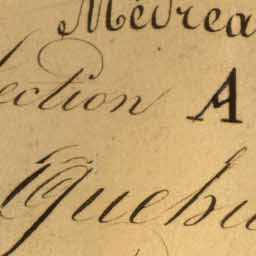 Médréa
ection A
Quehu